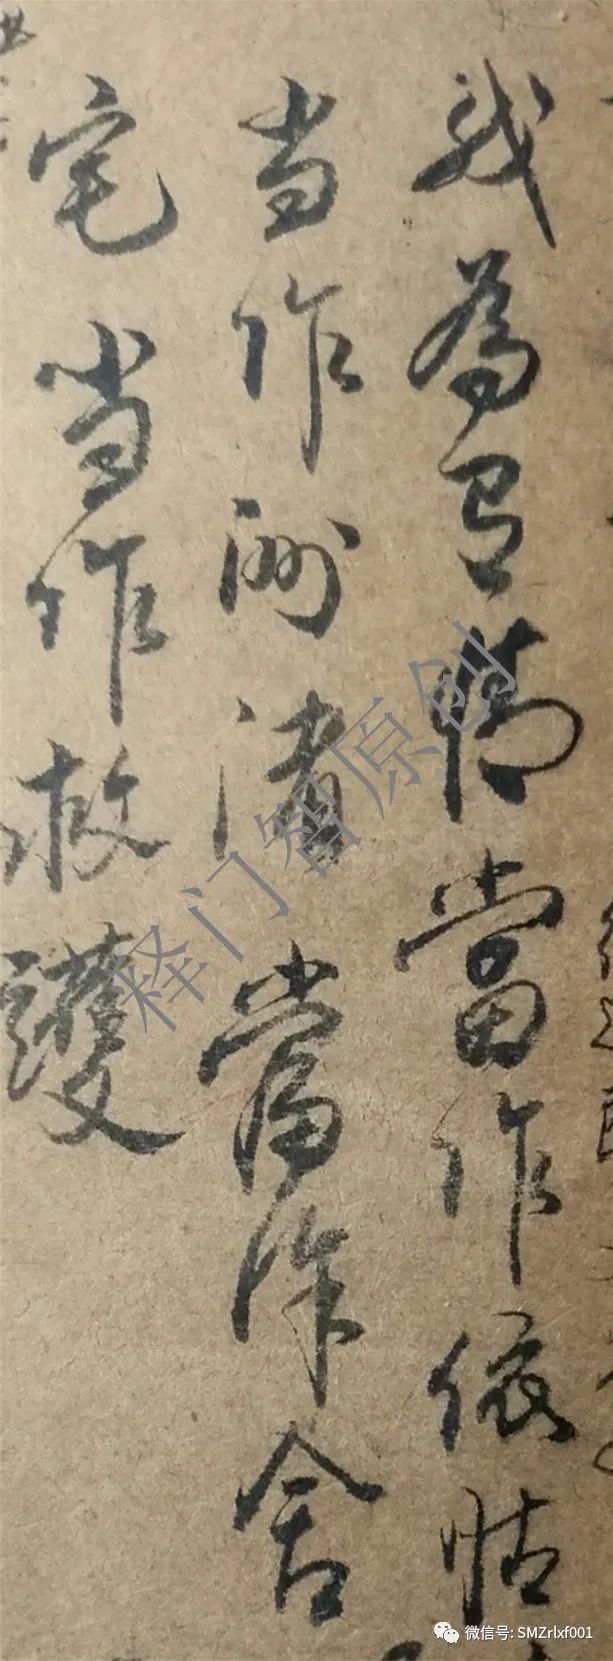 我為有情當作依怙
当作洲渚當作舍
宅当作救護
释门智原创
微信号: SMZrlxf001